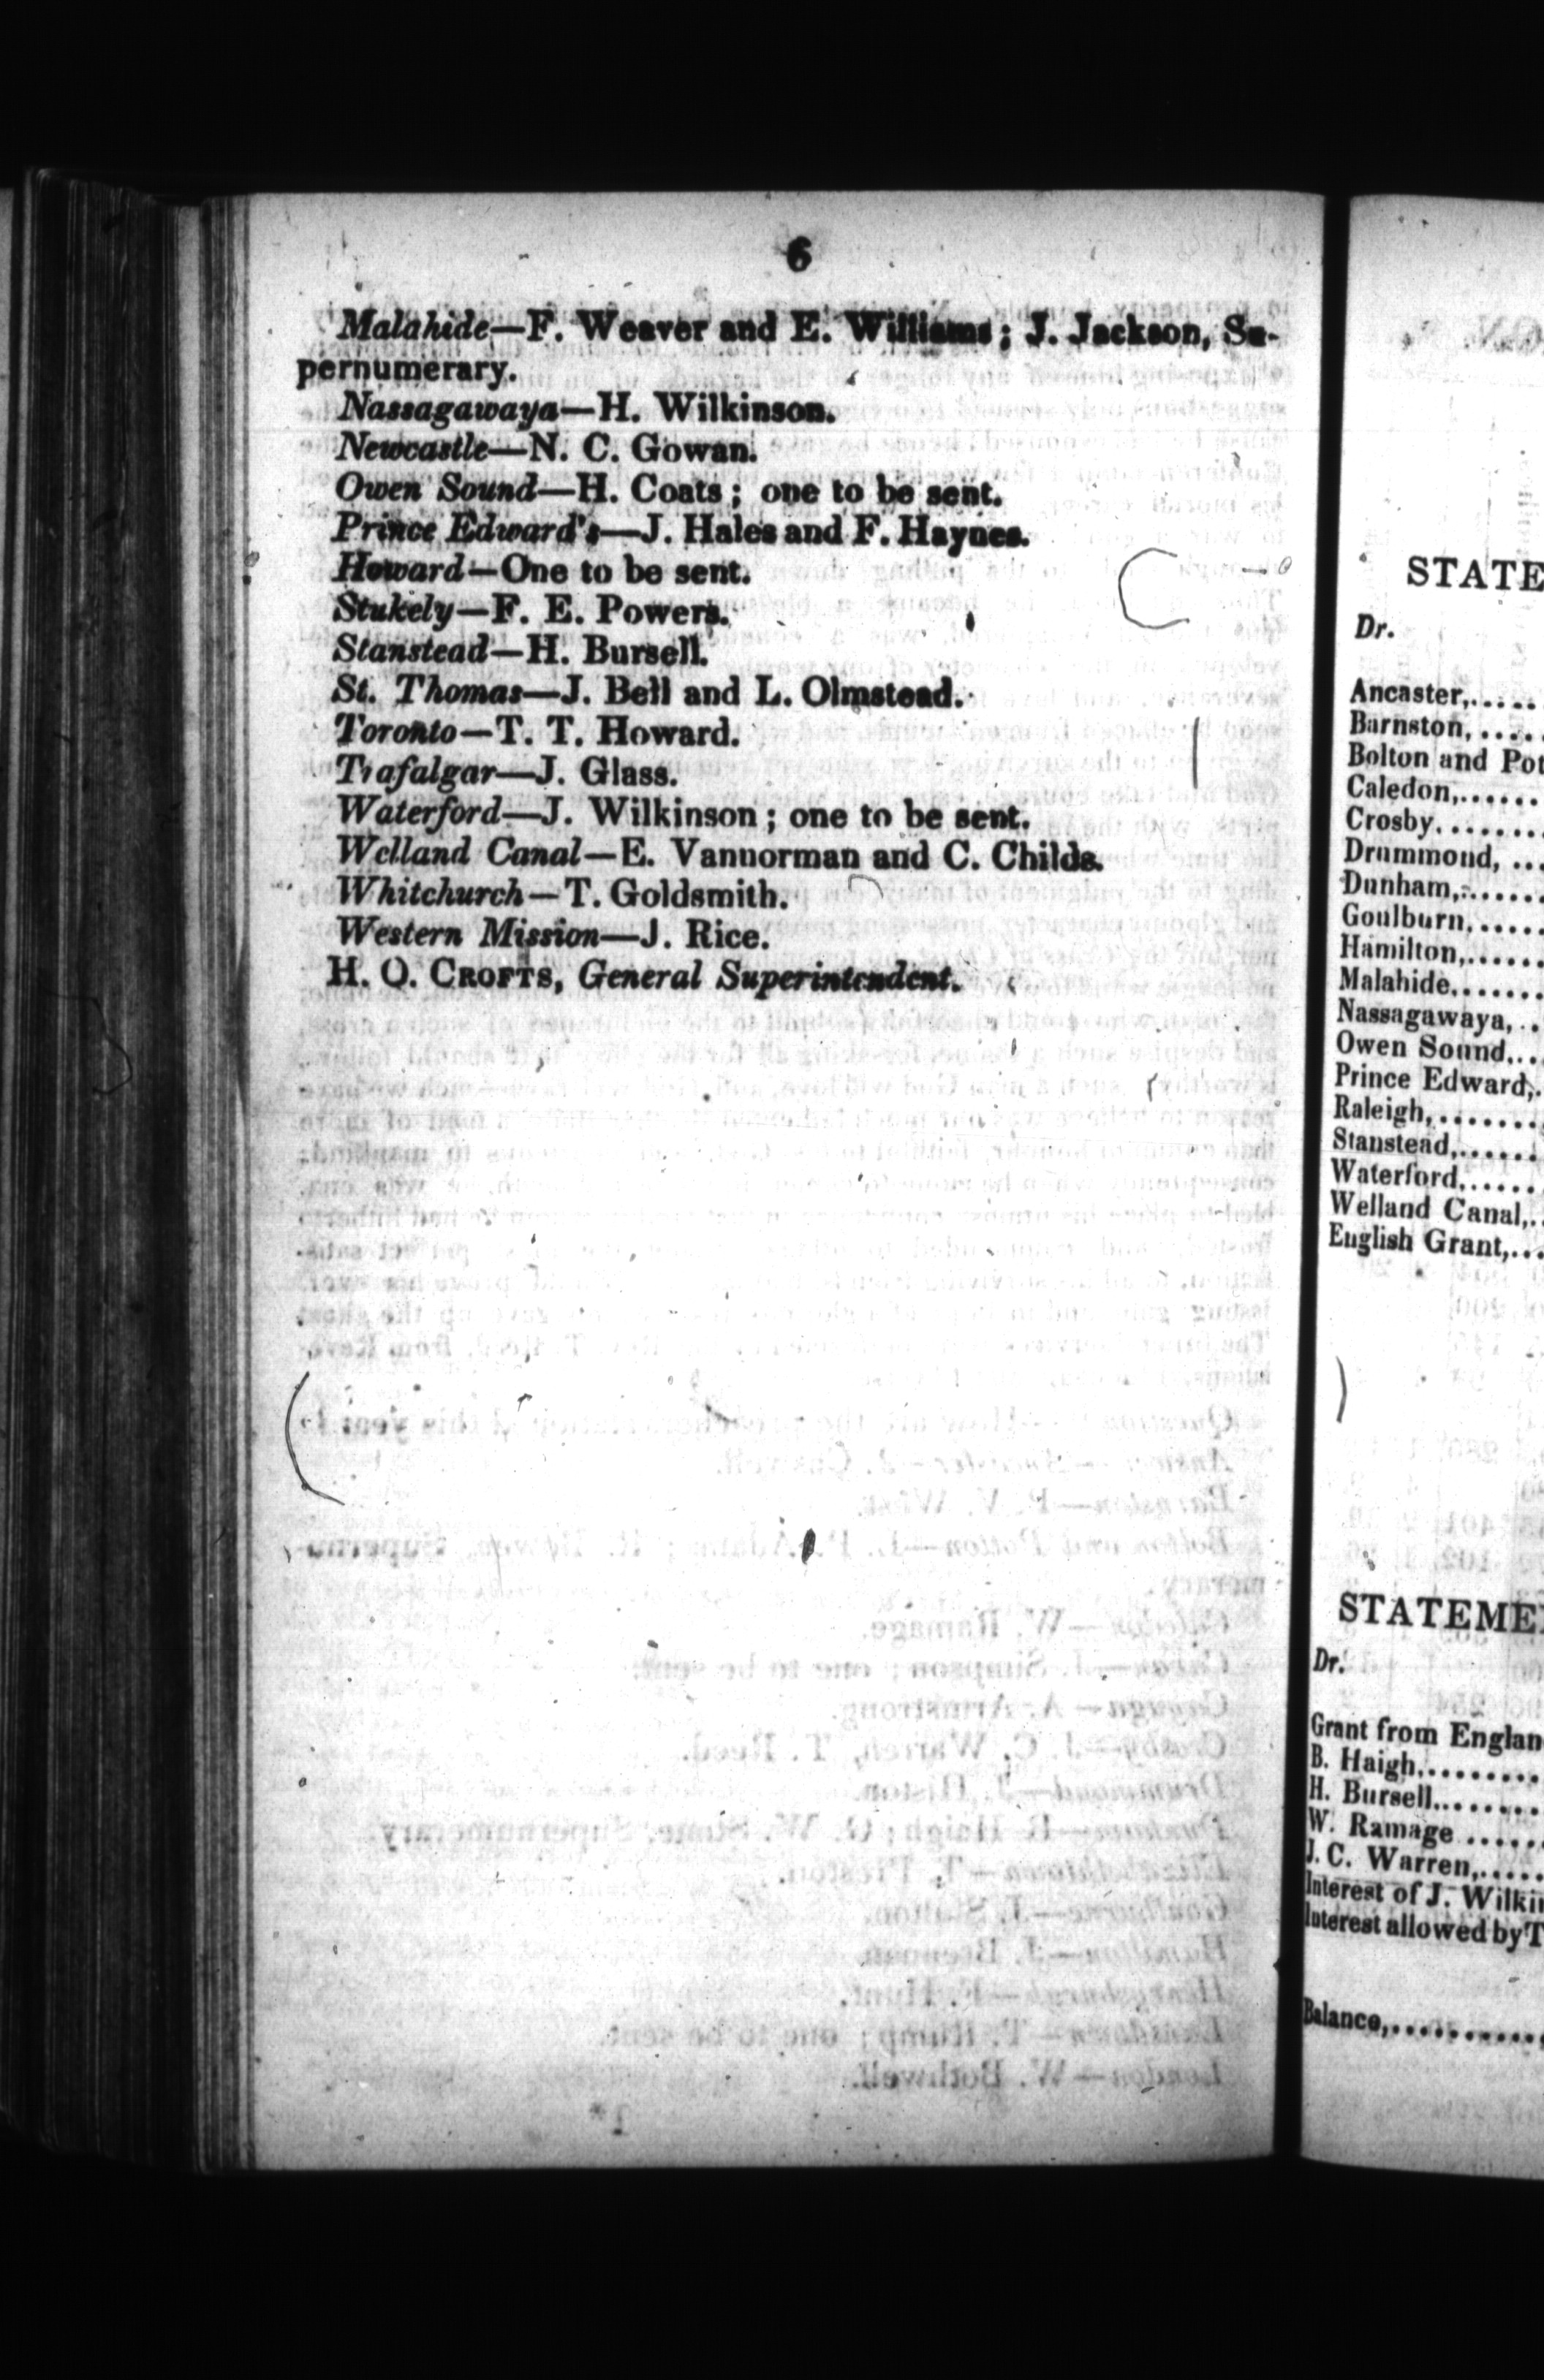 6
Malahide—F. Weaver and E. Williams; J. Jackson, Su-
pernumerary.
Nassagawaya—H. Wilkinson.
Newcastle—N. C. Gowan.
Owen Sound—H. Coats; one to be sent.
Prince Edward's—J. Hales and F. Haynes.
Howard—One to be sent.
Stukely—F. E. Powers.
Stanstead—H. Bursell.
St. Thomas—J. Bell and L. Olmstead.
Toronto—T. T. Howard.
Trafalgar—J. Glass.
Waterford—J. Wilkinson; one to be sent.
Welland Canal—E. Vannorman and C. Childs.
Whitchurch—T. Goldsmith.
Western Mission—J. Rice.
H. O. CROFTS, General Superintendent.
STATE
Dr.
Ancaster,.....
Barnston,.....
Bolton and Pot
Caledon,......
Crosby........
Drummond, ...
Dunham,.......
Goulburn,.....
Hamilton,......
Malahide.......
Nassagawaya,..
Owen Sound...
Prince Edward,.
Raleigh,.......
Stanstead,......
Waterford......
Welland Canal,..
English Grant,...
STATEME
Dr.
Grant from Englan
B. Haigh,........
H. Bursell........
W. Ramage ......
J. C. Warren,.....
Interest of J. Wilki
Interest allowed by T
Balance,...........